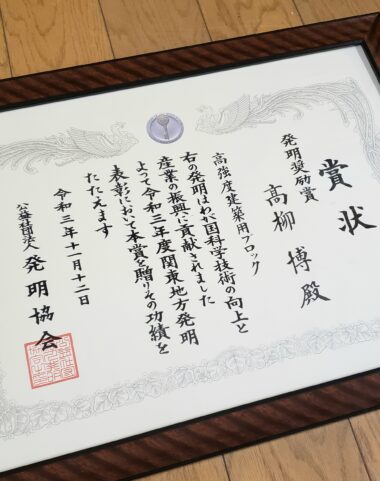 賞状
発明奨励賞
髙柳 博 殿
高強度建築用ブロック
右の発明はわが国科学技術の向上と
産業の振興に貢献されました
よって令和三年度関東地方発明
表彰において本賞を贈りその功績を
たたえます
令和三年十一月十二日
公益社団法人 発明協会